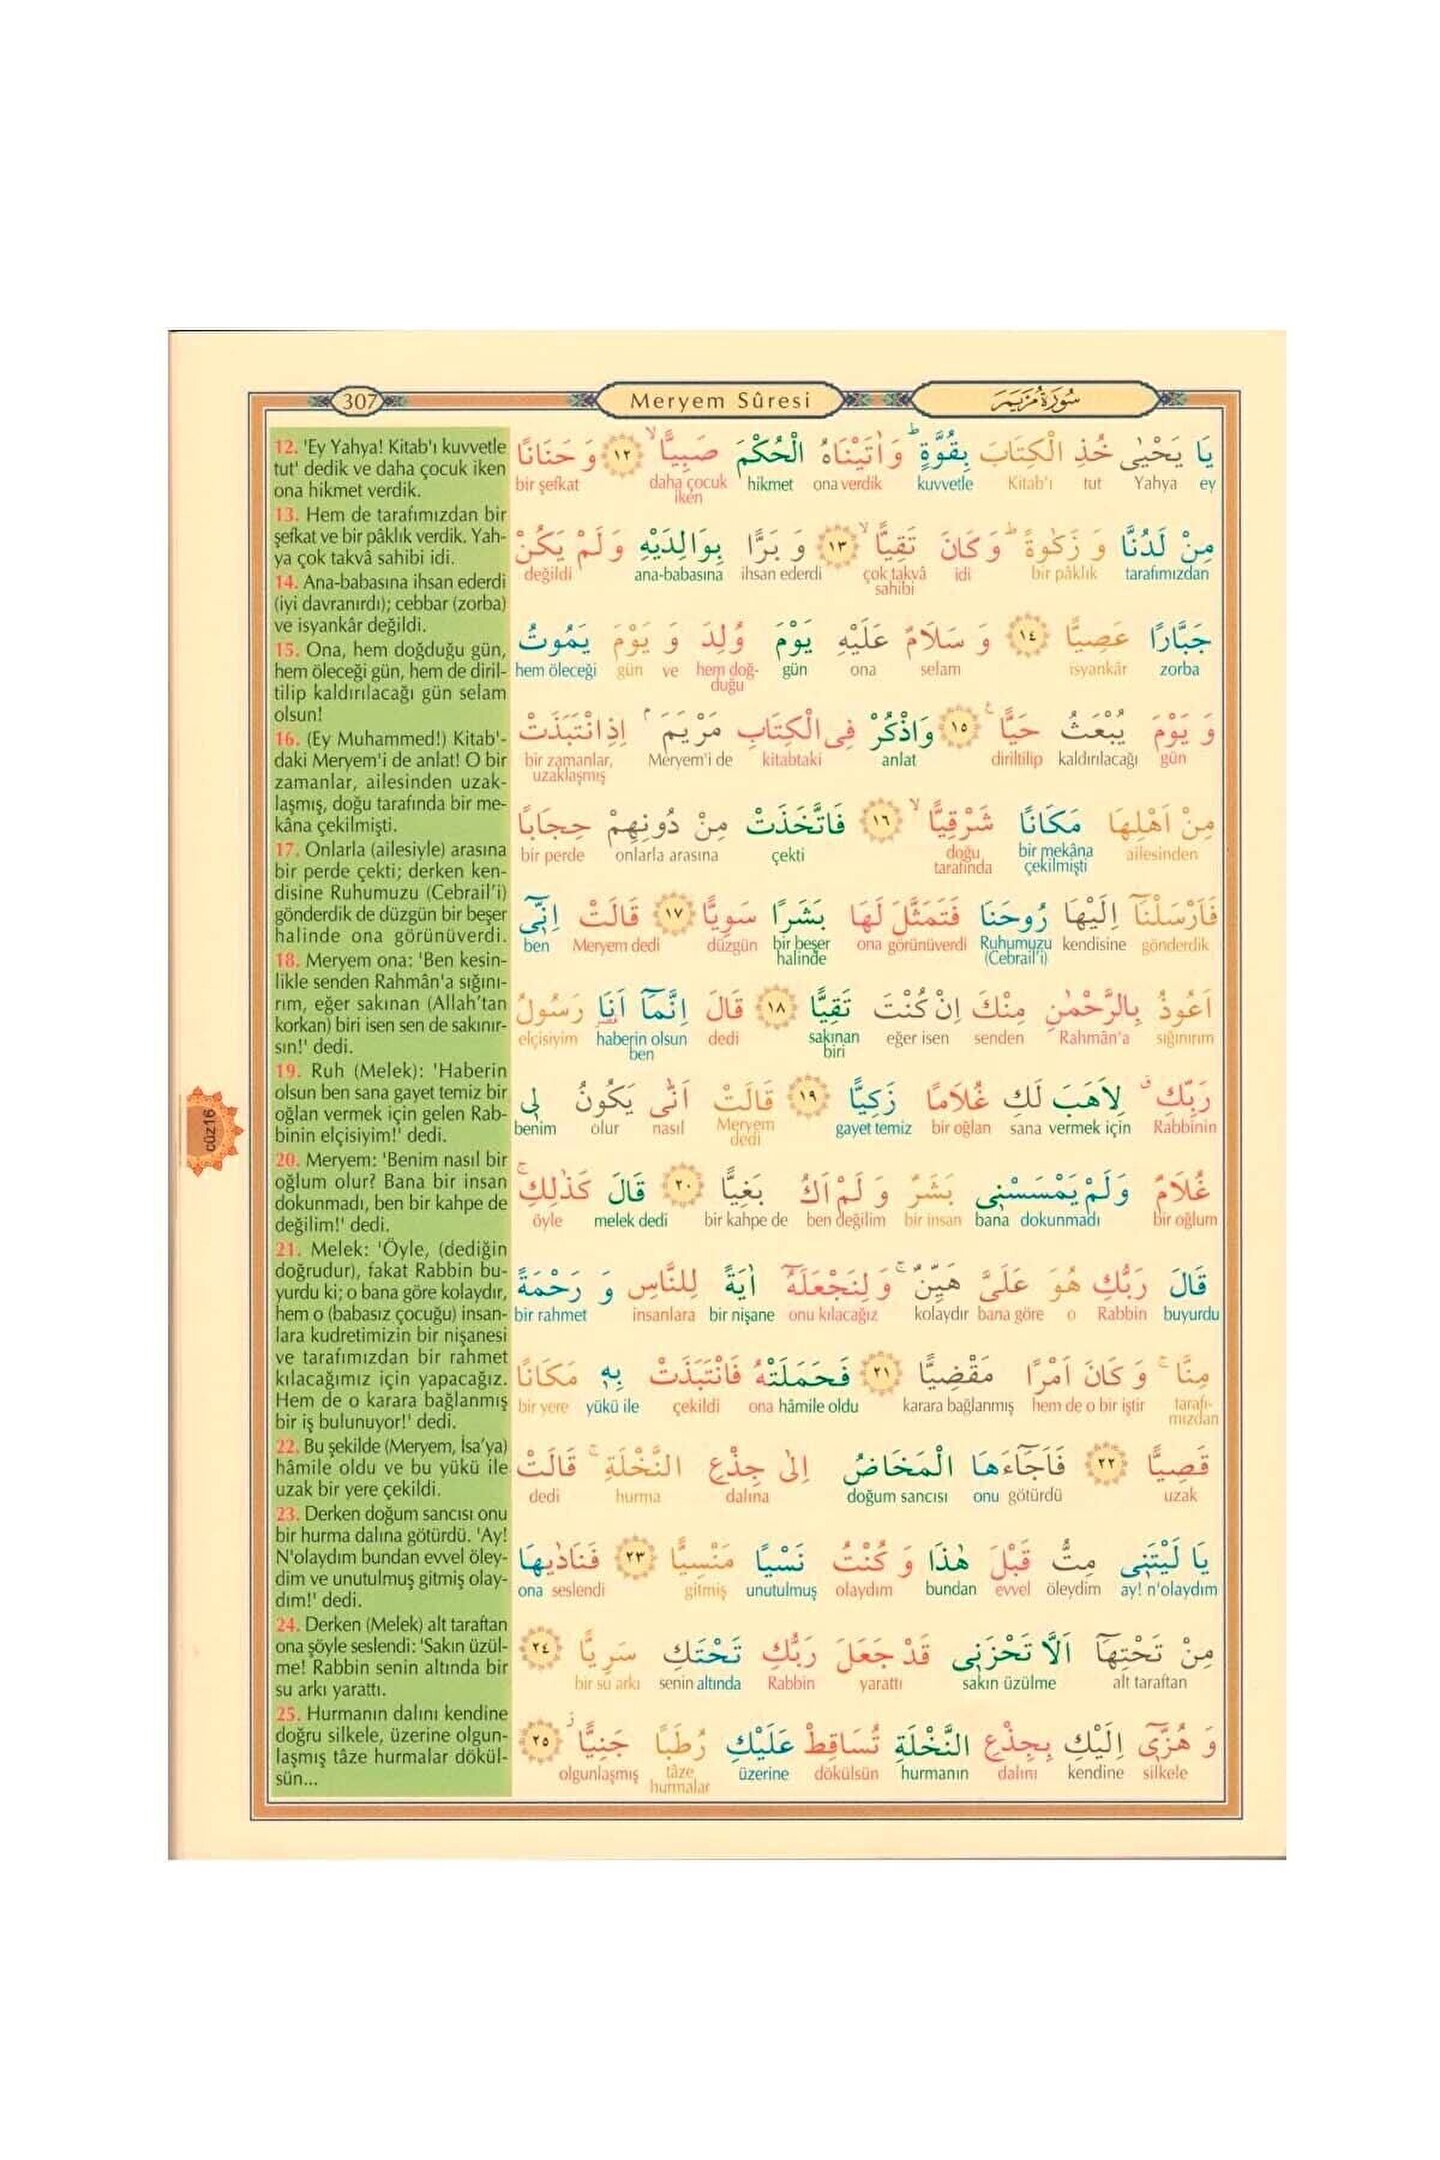 307
Meryem Sûresi
سُورَةُ مَرْيَمَ
12. 'Ey Yahya! Kitab'ı kuvvetle
tut' dedik ve daha çocuk iken
ona hikmet verdik.
13. Hem de tarafımızdan bir
şefkat ve bir pâklık verdik. Yah-
ya çok takvâ sahibi idi.
14. Ana-babasına ihsan ederdi
(iyi davranırdı); cebbar (zorba)
ve isyankâr değildi.
15. Ona, hem doğduğu gün,
hem öleceği gün, hem de diril-
tilip kaldırılacağı gün selam
olsun!
16. (Ey Muhammed!) Kitab'-
daki Meryem'i de anlat! O bir
zamanlar, ailesinden uzak-
laşmış, doğu tarafında bir me-
kâna çekilmişti.
17. Onlarla (ailesiyle) arasına
bir perde çekti; derken ken-
disine Ruhumuzu (Cebrail'i)
gönderdik de düzgün bir beşer
halinde ona görünüverdi.
18. Meryem ona: 'Ben kesin-
likle senden Rahmân'a sığını-
rım, eğer sakınan (Allah'tan
korkan) biri isen sen de sakınır-
sın!' dedi.
19. Ruh (Melek): 'Haberin
olsun ben sana gayet temiz bir
oğlan vermek için gelen Rab-
binin elçisiyim!' dedi.
20. Meryem: 'Benim nasıl bir
oğlum olur? Bana bir insan
dokunmadı, ben bir kahpe de
değilim!' dedi.
21. Melek: 'Öyle, (dediğin
doğrudur), fakat Rabbin bu-
yurdu ki; o bana göre kolaydır,
hem o (babasız çocuğu) insan-
lara kudretimizin bir nişanesi
ve tarafımızdan bir rahmet
kılacağımız için yapacağız.
Hem de o karara bağlanmış
bir iş bulunuyor!' dedi.
22. Bu şekilde (Meryem, İsa'ya)
hâmile oldu ve bu yükü ile
uzak bir yere çekildi.
23. Derken doğum sancısı onu
bir hurma dalına götürdü. 'Ay!
N'olaydım bundan evvel öley-
dim ve unutulmuş gitmiş olay-
dım!' dedi.
24. Derken (Melek) alt taraftan
ona şöyle seslendi: 'Sakın üzül-
me! Rabbin senin altında bir
su arkı yarattı.
25. Hurmanın dalını kendine
doğru silkele, üzerine olgun-
laşmış tâze hurmalar dökül-
sün...
cüz16
يَا يَحْيٰى خُذِ الْكِتَابَ بِقُوَّةٍۜ وَ اٰتَيْنَاهُ الْحُكْمَ صَبِيًّاۙ ﴿١٢﴾ وَ حَنَانًا
ey Yahya tut Kitab'ı kuvvetle ona verdik hikmet daha çocuk iken bir şefkat
مِنْ لَدُنَّا وَ زَكٰوةًۜ وَ كَانَ تَقِيًّاۙ ﴿١٣﴾ وَ بَرًّا بِوَالِدَيْهِ وَ لَمْ يَكُنْ
tarafımızdan bir pâklık idi çok takvâ sahibi ihsan ederdi ana-babasına değildi
جَبَّارًا عَصِيًّا ﴿١٤﴾ وَ سَلَامٌ عَلَيْهِ يَوْمَ وُلِدَ وَ يَوْمَ يَمُوتُ
zorba isyankâr selam ona gün hem doğ-duğu ve gün hem öleceği
وَ يَوْمَ يُبْعَثُ حَيًّا۟ ﴿١٥﴾ وَاذْكُرْ فِي الْكِتَابِ مَرْيَمَۢ اِذِ انْتَبَذَتْ
gün kaldırılacağı diriltilip anlat kitabtaki Meryem'i de bir zamanlar, uzaklaşmış
مِنْ اَهْلِهَا مَكَانًا شَرْقِيًّاۙ ﴿١٦﴾ فَاتَّخَذَتْ مِنْ دُونِهِمْ حِجَابًا
ailesinden bir mekâna çekilmişti doğu tarafında çekti onlarla arasına bir perde
فَاَرْسَلْنَٓا اِلَيْهَا رُوحَنَا فَتَمَثَّلَ لَهَا بَشَرًا سَوِيًّا ﴿١٧﴾ قَالَتْ اِنّ۪ٓي
gönderdik kendisine Ruhumuzu (Cebrail'i) ona görünüverdi bir beşer halinde düzgün Meryem dedi ben
اَعُوذُ بِالرَّحْمٰنِ مِنْكَ اِنْ كُنْتَ تَقِيًّا ﴿١٨﴾ قَالَ اِنَّمَٓا اَنَا رَسُولُ
sığınırım Rahmân'a senden eğer isen sakınan biri dedi haberin olsun ben elçisiyim
رَبِّكِۗ لِاَهَبَ لَكِ غُلَامًا زَكِيًّا ﴿١٩﴾ قَالَتْ اَنّٰى يَكُونُ ل۪ي
Rabbinin vermek için sana bir oğlan gayet temiz Meryem dedi nasıl olur benim
غُلَامٌ وَ لَمْ يَمْسَسْن۪ي بَشَرٌ وَ لَمْ اَكُ بَغِيًّا ﴿٢٠﴾ قَالَ كَذٰلِكِۚ
bir oğlum dokunmadı bana bir insan ben değilim bir kahpe de melek dedi öyle
قَالَ رَبُّكِ هُوَ عَلَيَّ هَيِّنٌۚ وَ لِنَجْعَلَهُٓ اٰيَةً لِلنَّاسِ وَ رَحْمَةً
buyurdu Rabbin o bana göre kolaydır onu kılacağız bir nişane insanlara bir rahmet
مِنَّاۚ وَ كَانَ اَمْرًا مَقْضِيًّا ﴿٢١﴾ فَحَمَلَتْهُ فَانْتَبَذَتْ بِه۪ مَكَانًا
tarafı-mızdan hem de o bir iştir karara bağlanmış ona hâmile oldu çekildi yükü ile bir yere
قَصِيًّا ﴿٢٢﴾ فَاَجَٓاءَهَا الْمَخَاضُ اِلٰى جِذْعِ النَّخْلَةِۚ قَالَتْ
uzak onu götürdü doğum sancısı dalına hurma dedi
يَا لَيْتَن۪ي مِتُّ قَبْلَ هٰذَا وَ كُنْتُ نَسْيًا مَنْسِيًّا ﴿٢٣﴾ فَنَادٰيهَا
ay! n'olaydım öleydim evvel bundan olaydım unutulmuş gitmiş ona seslendi
مِنْ تَحْتِهَٓا اَلَّا تَحْزَن۪ي قَدْ جَعَلَ رَبُّكِ تَحْتَكِ سَرِيًّا ﴿٢٤﴾
alt taraftan sakın üzülme yarattı Rabbin senin altında bir su arkı
وَ هُزّ۪ٓي اِلَيْكِ بِجِذْعِ النَّخْلَةِ تُسَاقِطْ عَلَيْكِ رُطَبًا جَنِيًّاۘ ﴿٢٥﴾
silkele kendine dalını hurmanın dökülsün üzerine tâze hurmalar olgunlaşmış